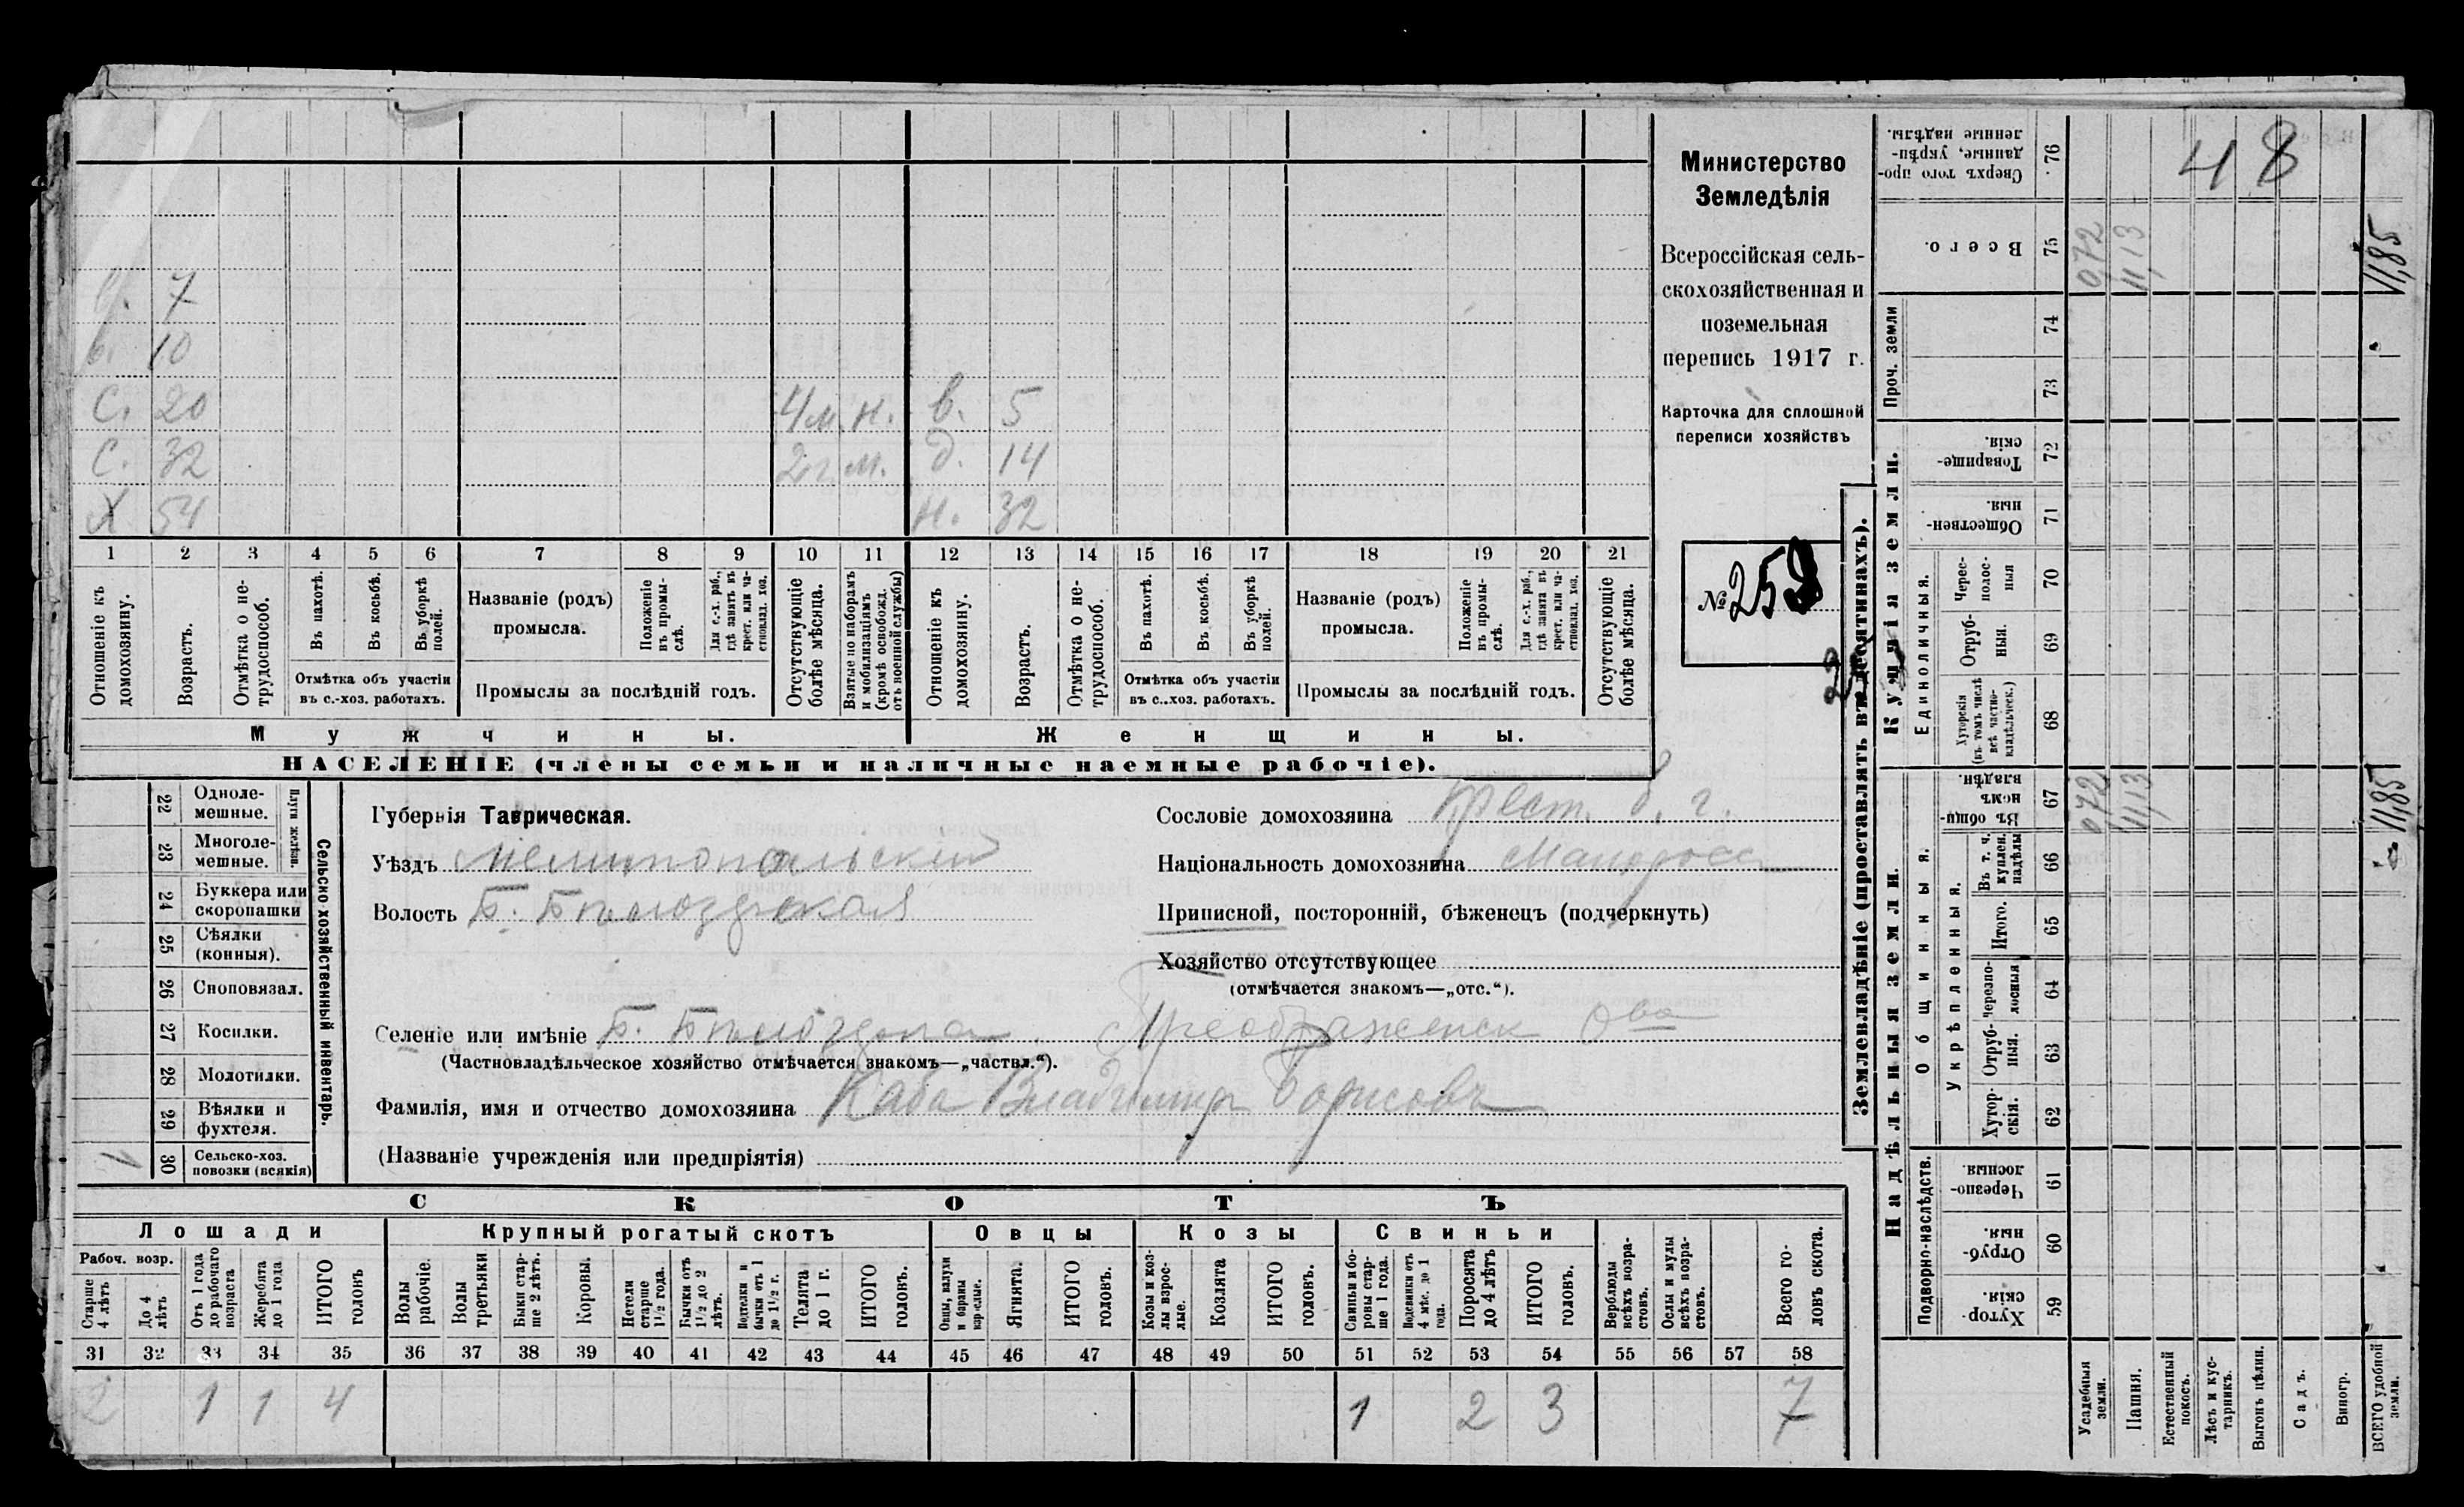 в. 7
в. 10
С. 20 4 м. н. в. 5
С. 32 2 г. м. д. 14
Х 54 н. 32
1 2 3 4 5 6 7 8 9 10 11 12 13 14 15 16 17 18 19 20 21
Отношеніе къ домохозяину.
Возрастъ.
Отмѣтка о не-трудоспособ.
Въ пахотѣ.
Въ косьбѣ.
Въ уборкѣ полей.
Отмѣтка объ участіи
въ с.-хоз. работахъ.
Названіе (родъ)
промысла.
Положеніе въ промы-слѣ.
Для с.-х. раб., гдѣ занятъ въ крест. или ча-стновлад. хоз.
Промыслы за послѣдній годъ.
Отсутствующіе болѣе мѣсяца.
Взятые по наборамъ и мобилизаціямъ (кромѣ освобожд. отъ военной службы)
Отношеніе къ домохозяину.
Возрастъ.
Отмѣтка о не-трудоспособ.
Въ пахотѣ.
Въ косьбѣ.
Въ уборкѣ полей.
Отмѣтка объ участіи
въ с..хоз. работахъ.
Названіе (родъ)
промысла.
Положеніе въ промы-слѣ.
Для с.-х. раб., гдѣ занята въ крест. или ча-стновлад. хоз.
Промыслы за послѣдній годъ.
Отсутствующіе болѣе мѣсяца.
Мужчины. Женщины.
НАСЕЛЕНІЕ (члены семьи и наличные наемные рабочіе).
Министерство
Земледѣлія
Всероссійская сель-
скохозяйственная и
поземельная
перепись 1917 г.
Карточка для сплошной
переписи хозяйствъ
№ 252
22 Одноле-мешные.
23 Многоле-мешные.
Плуги желѣзн.
24 Буккера или скоропашки
25 Сѣялки (конныя).
26 Сноповязал.
27 Косилки.
28 Молотилки.
29 Вѣялки и фухтеля.
30 Сельско-хоз. повозки (всякія)
Сельско-хозяйственный инвентарь.
Губернія Таврическая.
Уѣздъ Мелитопольский
Волость Б. Бѣлозерская
Сословіе домохозяина Крест. б. г.
Національность домохозяина Малоросс
Приписной, посторонній, бѣженецъ (подчеркнуть)
Хозяйство отсутствующее
(отмѣчается знакомъ—„отс.“).
Селеніе или имѣніе Б. Бѣлозерка Преображенск Ова
(Частновладѣльческое хозяйство отмѣчается знакомъ—„частвл.“).
Фамилія, имя и отчество домохозяина Каба Владимиръ Борисовъ
(Названіе учрежденія или предпріятія)
СКОТЪ
Лошади Крупный рогатый скотъ Овцы Козы Свиньи
Рабоч. возр.
Старше 4 лѣтъ
До 4 лѣтъ
Отъ 1 года до рабочаго возраста
Жеребята до 1 года
ИТОГО головъ
Волы рабочіе.
Волы третьяки
Быки стар-ше 2 лѣтъ.
Коровы.
Нетели старше 1½ года.
Бычки отъ 1½ до 2 лѣтъ.
Подтелки и бычки отъ 1 до 1½ г.
Телята до 1 г.
ИТОГО головъ.
Овцы, валухи и бараны взрослые.
Ягнята.
ИТОГО головъ.
Козы и коз-лы взрос-лые.
Козлята
ИТОГО головъ.
Свиньи и бо-ровы стар-ше 1 года.
Подсвинки отъ 4 мѣс. до 1 года.
Поросята до 4 лѣтъ
ИТОГО головъ.
Верблюды всѣхъ возра-стовъ.
Ослы и мулы всѣхъ возра-стовъ.
Всего го-ловъ скота.
31 32 33 34 35 36 37 38 39 40 41 42 43 44 45 46 47 48 49 50 51 52 53 54 55 56 57 58
2 1 1 4 1 2 3 7
Землевладѣніе (проставлять въ десятинахъ).
Купчія земли.
Надѣльныя земли.
Сверхъ того про-данные, укрѣп-ленные надѣлы. 76
48
Всего. 75 0,72 11,13 11,85
Проч. земли 74
73
Товарище-скія. 72
Обществен-ныя. 71
Единоличныя.
Черес-полос-ныя 70
Отруб-ныя. 69
Хуторскія (въ томъ числѣ всѣ частно-владѣльческ.) 68
Общинныя.
Въ общи-номъ владѣн. 67 0,72 11,13 11,85
Укрѣпленныя.
Въ т. ч. куплен. надѣлы 66
Итого. 65
Черезпо-лосныя 64
Отруб-ныя. 63
Хутор-скія. 62
Подворно-наслѣдств.
Черезпо-лосныя. 61
Отруб-ныя. 60
Хутор-скія. 59
Усадебныя земли.
Пашня.
Естественный покосъ.
Лѣсъ и кус-тарникъ.
Выгонъ цѣлин.
Садъ.
Виногр.
ВСЕГО удобной земли.